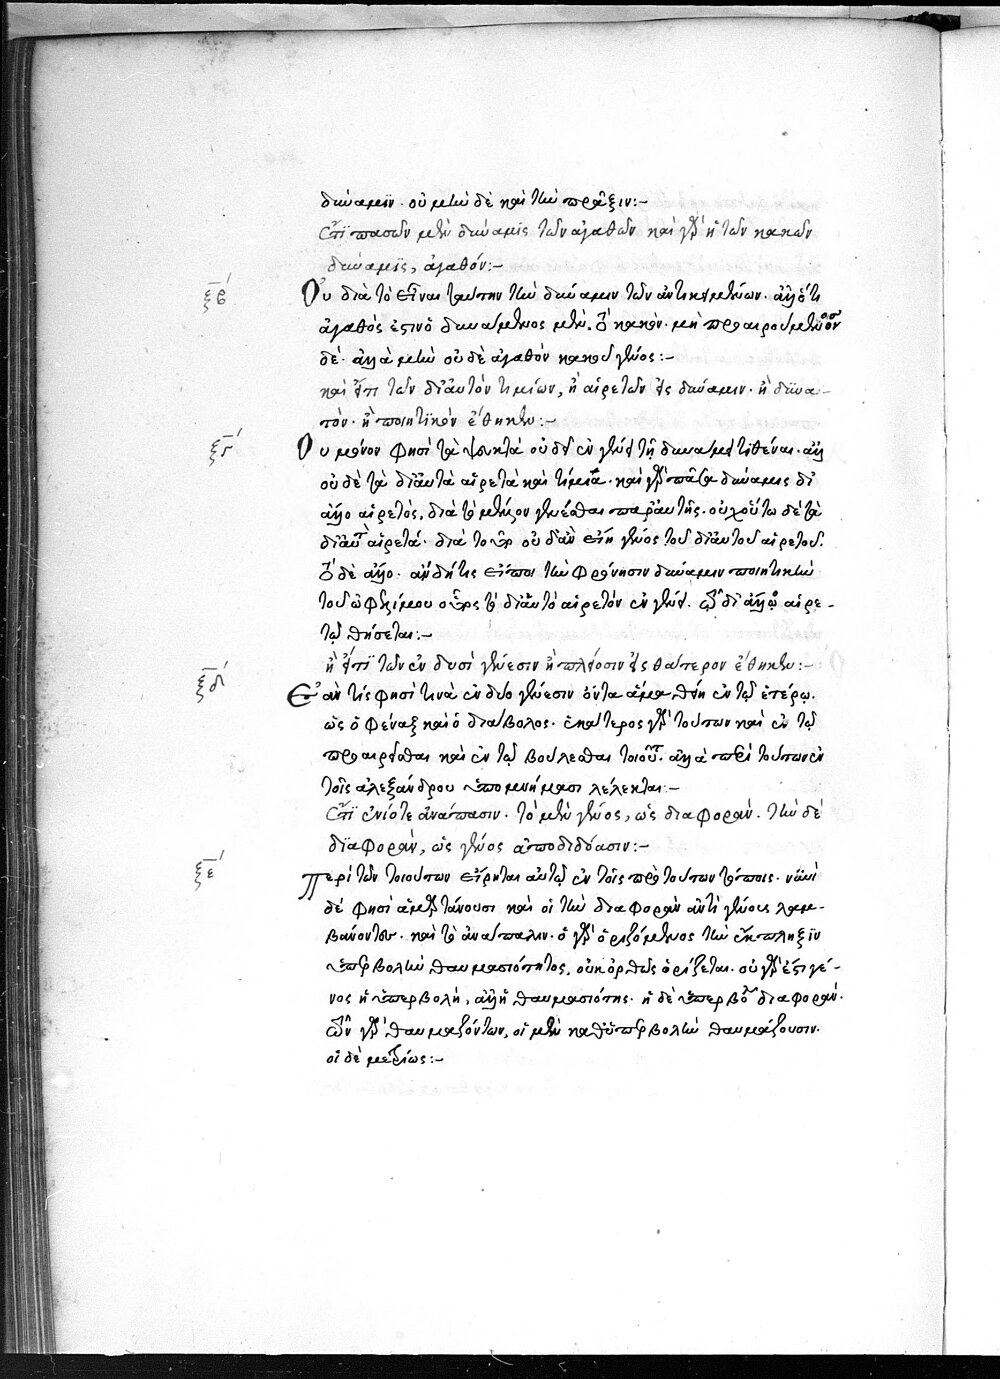 δύναμιν· οὐ μὴν δὲ καὶ τὴν πρᾶξιν:-
Ἐπῒ πασῶν μὲν δύναμις τῶν ἀγαθῶν καὶ γὰρ ἡ τῶν κακῶν
δύναμϊς, ἀγαθόν:-
ξβ´
Οὐ διὰ τὸ εἶναι ταύτην τὴν δύναμιν τῶν ἀντικειμένων. ἀλλ' ὅτι
ἀγαθός ἐστιν ὁ δυνάμενος μὲν κακὸν. μὴ προαιρούμενος
δέ· ἀλλὰ μὴν οὐδὲ ἀγαθὸν κακοῦ γένος:-
καὶ ἐπῒ τῶν δι' αὐτὸν τιμίων, ἢ αἱρετῶν εἰς δύναμιν· ἢ δϋνα-
τὸν· ἢ ποιητϊκὸν ἔθηκεν:-
ξγ´
Οὐ μόνον φησὶ τὰ ψεκτὰ οὐ δεῖ ἐν γένει τῇ δυνάμει τιθέναι· ἀλλ'
οὐδὲ τὰ δι' αὐτὰ αἱρετὰ καὶ τίμια· καὶ γὰρ πᾶσα δύναμις δι'
ἄλλο αἱρετὸς, διὰ τὸ μεῖζον γενέσθαι παρ' αὐτῆς. οὐχ οὕτω δὲ τὰ
δι' αὐτὰ αἱρετά· διὰ τοῦτο οὐδ' ἂν εἴη γένος τοῦ δι' αὐτοῦ αἱρετοῦ.
δὲ ἄλλο· ἂν δή τις εἴποι τὴν φρόνησιν δύναμιν ποιητικὴν
τοῦ ὠφελίμου οὗτος τὸ δι' αὐτὸ αἱρετὸν ἐν γένει. τῷ δι' ἄλλο αἱρε-
τῷ θήσεται:-
ἢ εἴ τϊ τῶν ἐν δυσὶ γένεσιν ἢ πλείοσιν εἰς θάτερον ἔθηκεν:-
ξδ´
Ἐάν τίς φησί τινὰ ἐν δυο γένεσιν ὄντα ἅμα, θῇ ἐν τῷ ἑτέρῳ.
ὡς ὁ φέναξ καὶ ὁ διάβολος. ἑκάτερος γὰρ τούτων καὶ ἐν τῷ
προαιρεῖσθαι καὶ ἐν τῷ βούλεσθαι τοιοῦτος. ἀλλὰ περὶ τούτων ἐν
τοῖς ἀλεξάνδρου ὑπομνήμασι λέλεκται:-
Ἐπῒ ἐνίοτε ἀνάπασιν· τὸ μὲν γένος, ὡς διαφοράν· τὴν δὲ
δϊαφορὰν, ὡς γένος ἀποδιδόασιν:-
ξε´
Περὶ τῶν τοιούτων εἴρηται αὐτῷ ἐν τοῖς πρὸ τούτων τόποις· νυνὶ
δέ φησι ἁμαρτάνουσι καὶ οἱ τὴν διαφορὰν ἀντὶ γένους λαμ-
βάνοντες· καὶ τὸ ἀνάπαλιν· ὁ γὰρ ὁριζόμενος τὴν ἔκπληξϊν
ὑπερβολὴν θαυμασιότητος, οὐκ ὀρθῶς ὁρίζεται. οὐ γάρ ἐστι γέ-
νος ἡ ὑπερβολὴ, ἀλλ' ἡ θαυμασιότης· ἡ δὲ ὑπερβολὴ διαφορὰν·
τῶν γὰρ θαυμαζόντων, οἱ μὲν καθ' ὑπερβολὴν θαυμάζουσιν·
οἱ δὲ μετρίως:-